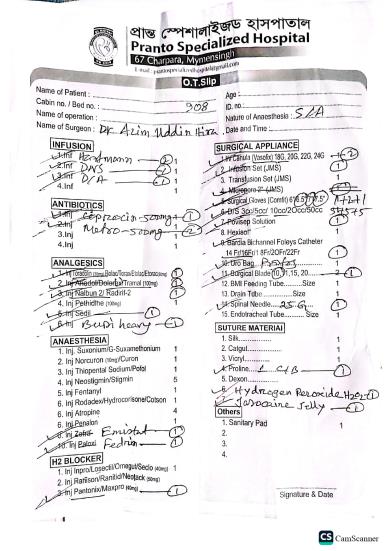 প্রান্ত স্পেশালাইজড হাসপাতাল
Pranto Specialized Hospital
67 Charpara, Mymensingh
E-mail: prantospecializedhospital@gmail.com
O.T.Slip
Name of Patient :
Age :
Cabin no. / Bed no. : 908
ID. no :
Name of operation :
Nature of Anaesthesia : S/A
Name of Surgeon : Dr. Azim Uddin
Date and Time :
INFUSION
1.Inf Hartmann 2
2.Inf DNS 1
3.Inf D/A 1
4.Inf
ANTIBIOTICS
1.Inj 500mg 1
2.Inj Metro-500mg 2
3.Inj 1
4.Inf 1
ANALGESICS
2. Inj Anadol/Dolonal/Tramal (100mg) 1
3. Inj Nalbun 2/ Radinil-2 1
4. Inj Pethidhe (100mg) 1
5. Inj Sedil 1
6. Inj Bupi heavy 1
ANAESTHESIA
1. Inj. Suxonium/G-Suxamethonium 1
2. Inj Norcuron (10mg)/Curon 1
3. Inj Thiopental Sodium/Pofol 1
4. Inj Neostigmin/Stigmin 5
5. Inj Fentanyl 1
6. Inj Rodadex/Hydrocorisone/Cotson 1
6. Inj Atropine 4
8. Inj Emistat 1
Fedrin 1
H2 BLOCKER
2. Inj Ranison/Ranitid/Neotack (50mg) 1
3. Inj Pantonix/Maxpro (40mg) 1
SURGICAL APPLIANCE
1. IV Canula (Vasofix) 18G, 20G, 22G, 24G 2
2. Infusion Set (JMS) 1
3. Transfusion Set (JMS) 1
4. Micropore 2" (JMS) 1
5. Surgical Gloves (Comfit) 6"/6.5"/7"/7.5" 1+2+1
6. D/S 3cc/5cc/ 10cc/20cc/50cc 3+5+5
7. Povisep Solution 1
8. Hexisol 1
9. Bardia Bichannel Foleys Catheter
14 Fr/16Fr/18Fr/20Fr/22Fr 1
10. Uro Bag 1
11. Surgical Blade 10, 11, 15, 20 1
12. BMI Feeding Tube.........Size 1
13. Drain Tube..............Size 1
14. Spinal Needle 25G 1
15. Endotracheal Tube.........Size 1
SUTURE MATERIAL
1. Silk 1
2. Catgut 1
3. Vicryl 1
4. Proline 1 C/B 1
5. Dexon 1
6. Hydrogen Peroxide H2O2 1
7. Jasocaine Jelly 1
Others
1. Sanitary Pad 1
2.
3.
4.
Signature & Date
CS CamScanner